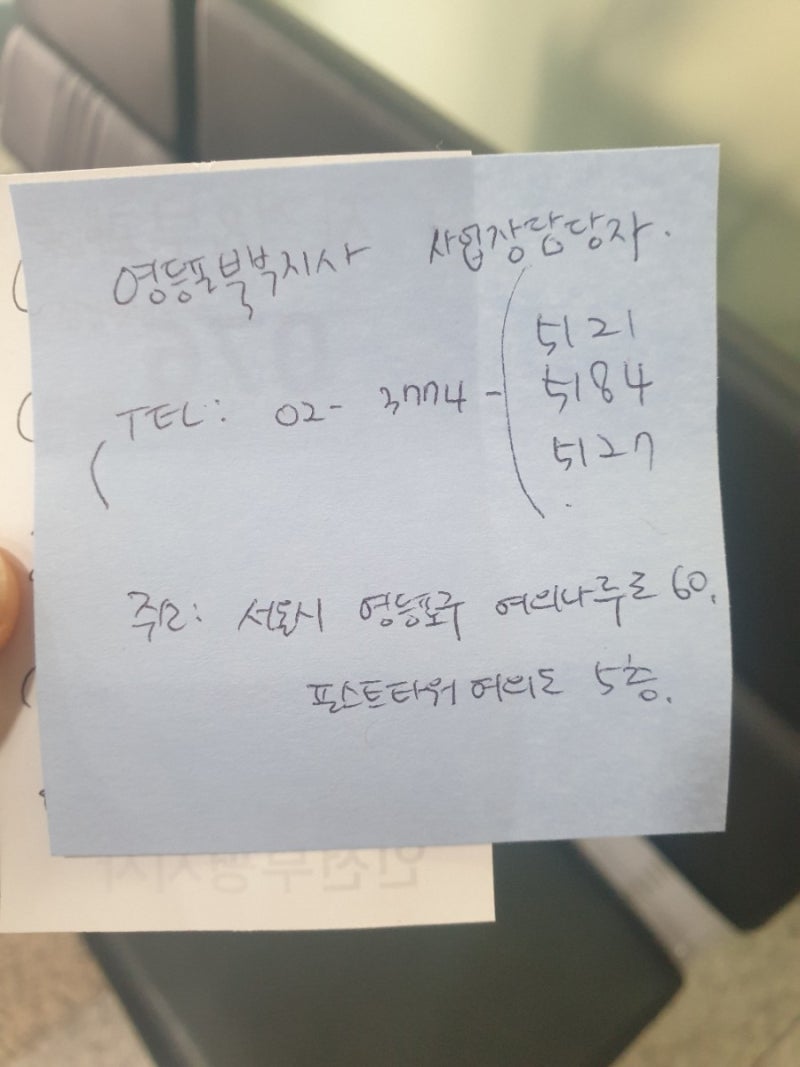 영등포북부지사 사업장담당자.
5121
TEL: 02- 3774 - 5184
5127
주소: 서울시 영등포구 여의나루로 60.
포스트타워 여의도 5층.